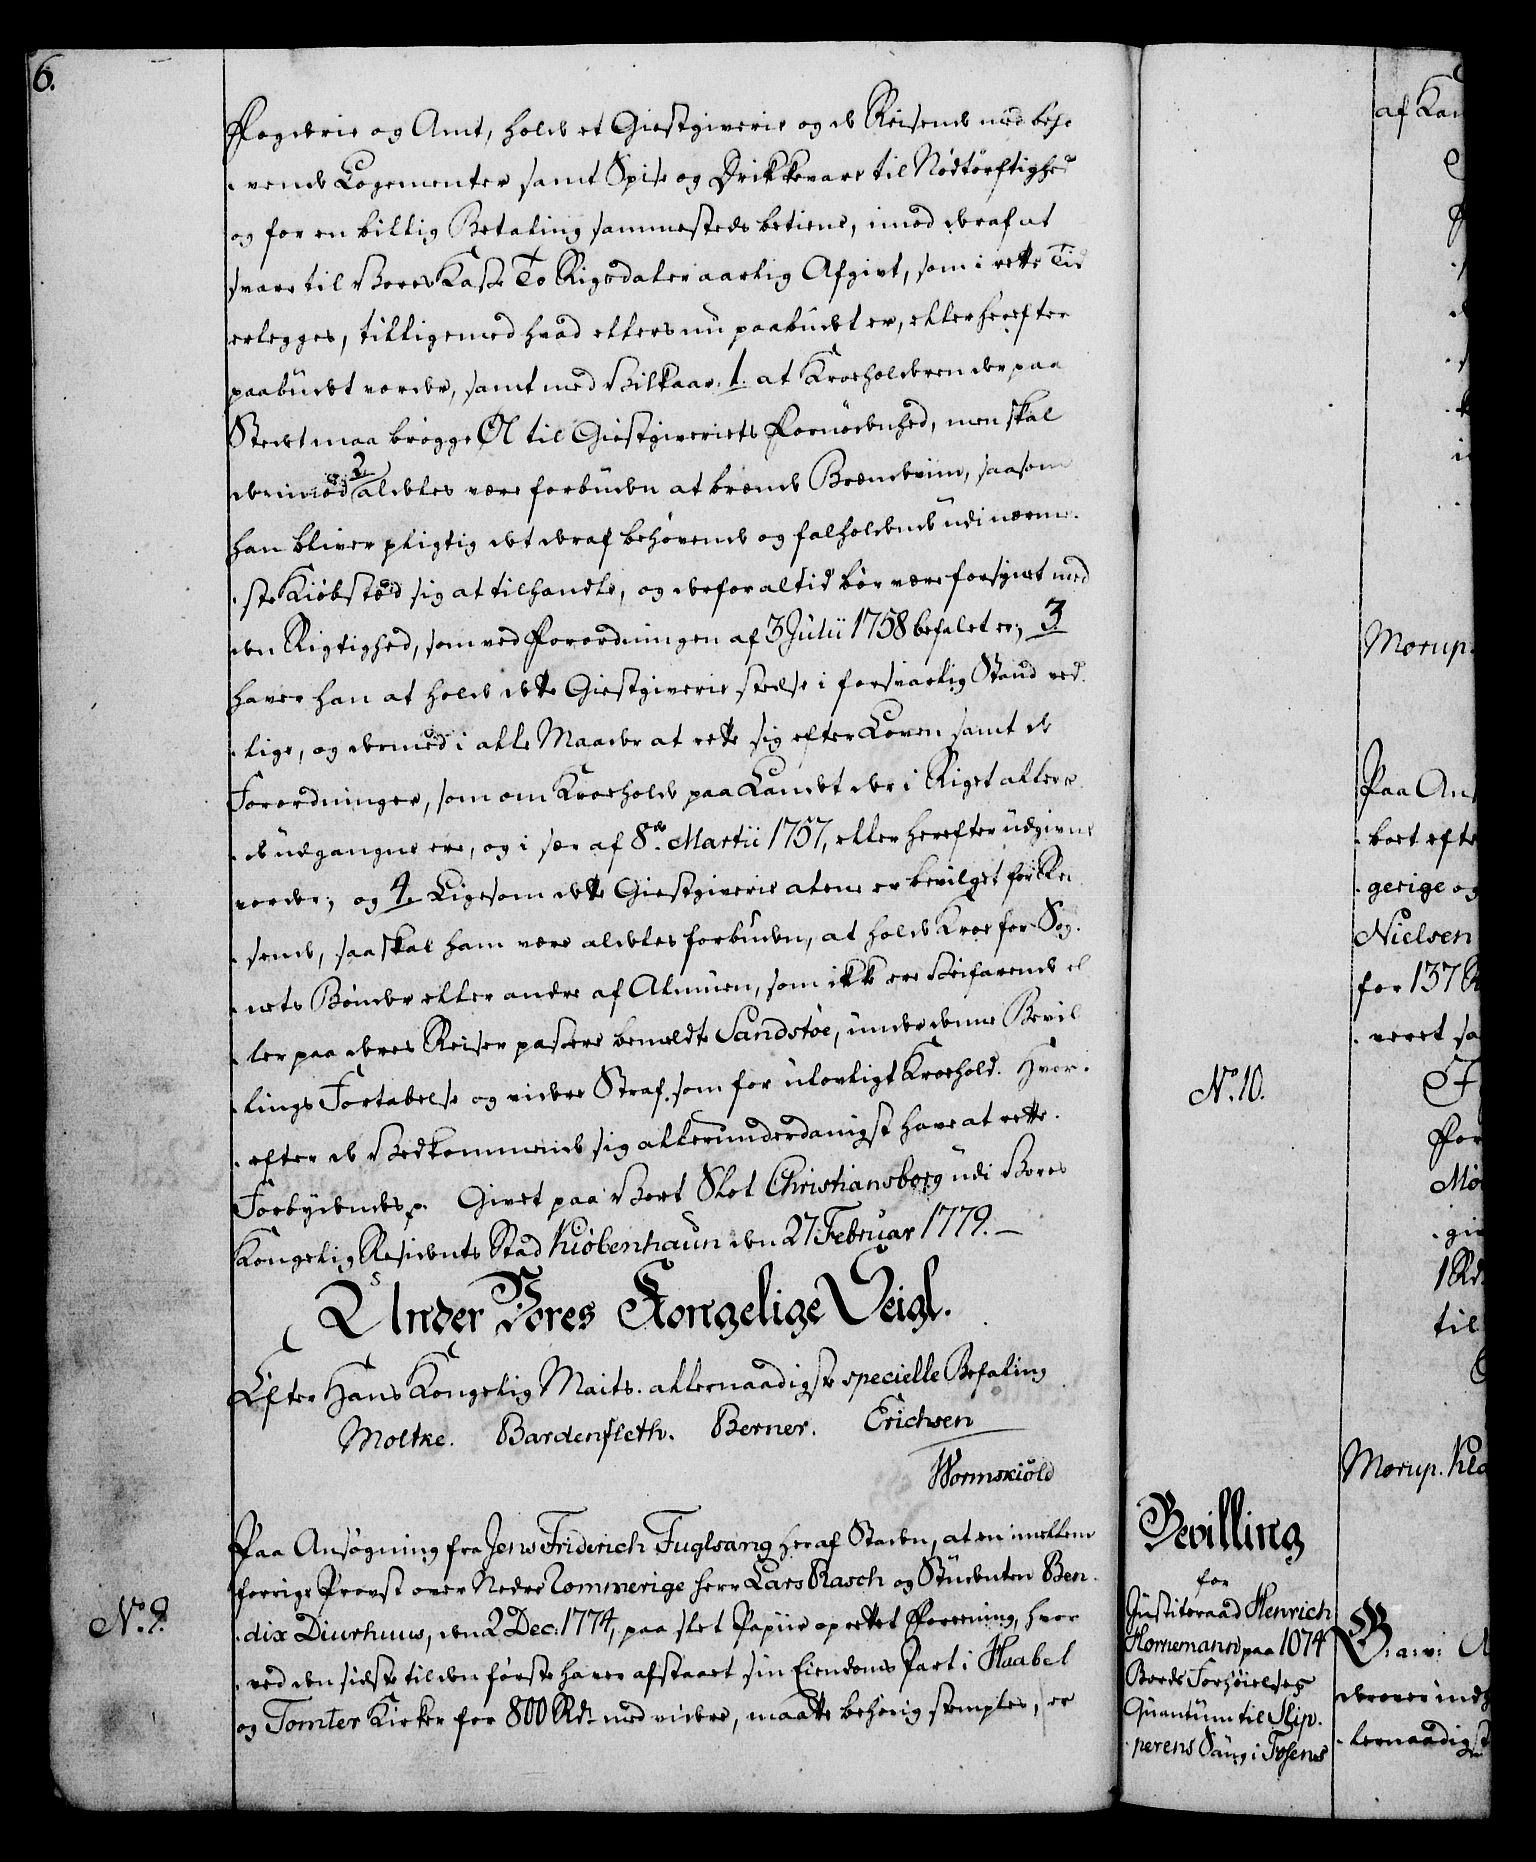 6.
Fogderie og Amt, holde et Giestgiverie og de Reisende med behø
vende Logementer samt Spise og Drikkevare til Nødtørftighed
og for en billig Betaling sammesteds betiene, imod deraf at
svare til Vores Kasse To Rigsdaler aarlig Afgivt, som i rette Tid
erlegges, tilligemed hvad ellers nu paabudet er, eller herefter
paabudet vorder, samt med Vilkaar. 1. at Kroeholderen der paa
Stedet maa brøgge Øl til Giestgiveriets Fornødenhed, men skal
derimod 2. aldeles være forbuden at brænde Brændeviin, saasom
han bliver pligtig det deraf behøvende og falholdende udi nærme-
ste Kiøbstæd sig at tilhandle, og derfor altid bør være forsynet med
den Rigtighed, som ved Forordningen af 3 Julii 1758 befalet er; 3
haver han at holde dette Giestgiverie stedse i forsvarlig Stand ved-
lige, og dermed i alle Maader at rette sig efter Loven samt de
Forordninger, som om Kroehold paa Landet der i Riget allere-
de udgangne ere, og i sær af 8de Martii 1757, eller herefter udgivne
vorder; og 4. Ligesom dette Giestgiverie alene er bevilget for Rei
sende, saa skal ham være aldeles forbuden, at holde Kroe for Sog-
nets Bønder eller andre af Almuen, som ikke ere Veifarende el
ler paa deres Reiser passere bemeldte Sandstøe, under denne Bevil
lings Fortabelse og videre Straf, som for ulovligt Kroehold. Hvor-
efter de Vedkommende sig allerunderdanigst have at rette.
Forbydendes p. Givet paa Vort Slot Christiansborg udi Vores
Kongelig Residents Stad Kiøbenhaun den 27 Februar 1779. —
Under Vores Kongelige Seigl.
Efter Hans Kongelig Maits. allernaadigste specielle Befaling
Moltke. Bardenfleth. Berner. Erichsen
Wormskiöld
No. 9.
Paa Ansøgning fra Jens Friderich Fuglsang her af Staden, at en imellem
forrige Provst over Nedre Rommerige Herr Lars Rasch og Studenten Ben-
dix Diurhuus, den 2 Dec: 1774, paa slet Papiir oprettet Forening, hvor
ved den sidste til den første haver afstaaet sin Eiendoms Part i Haabel
og Tomter Kirker for 800 Rdr. med videre, maatte behørig stemples, er
No. 10.
Bevilling
for
Justitsraad Henrich
Hornemann paa 1074
Bords Forhøielses
Quantum til Slip-
perens Saug i Fosens
af Kam
Morup.
Paa An
boet efte
gerige og
Nielsen
for 137 R
veret sa
For
gi
1 Rd
til
Morup.
G: a: v: A
derover indh
lernaadigst